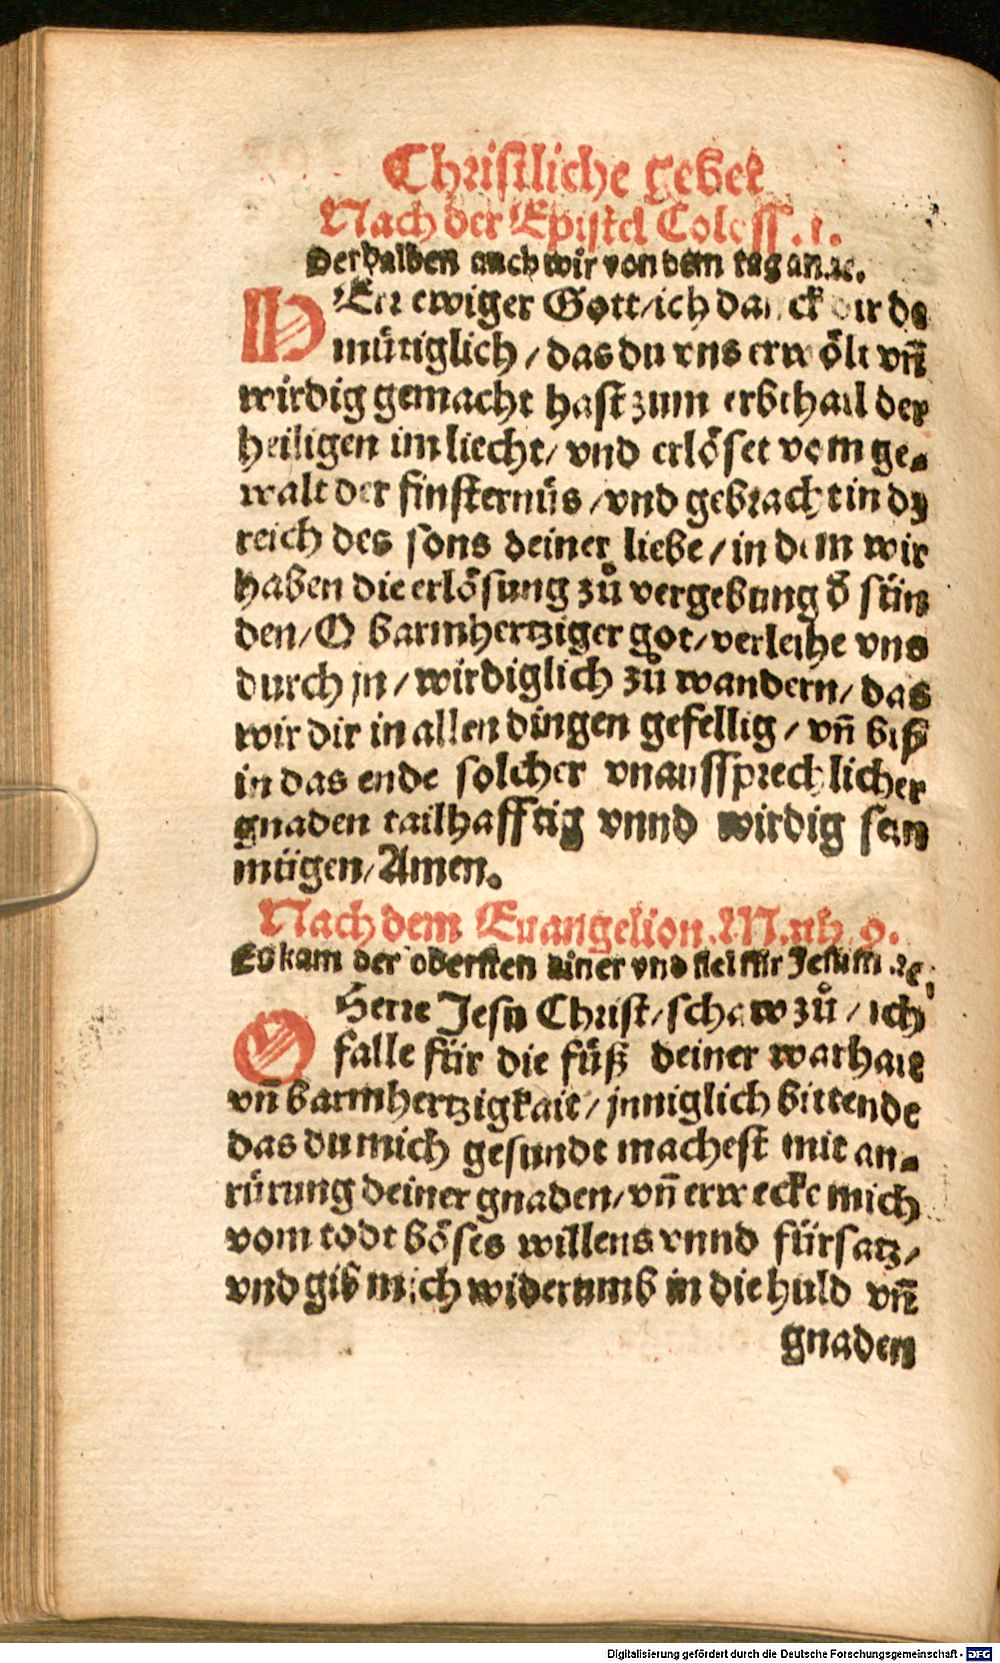 Christliche gebet
Nach der Epistel Coloss. 1.
Derhalben auch wir von dem tag an. ꝛc.
HErr ewiger Gott/ich danck dir de
mütiglich/das du vns erwölt vn̄
wirdig gemacht hast zum erbthail der
heiligen im liecht/vnd erlöset vom ge⸗
walt der finsternüs/vnd gebracht in dz
reich des sons deiner liebe/in dem wir
haben die erlösung zů vergebung d̄ sün
den/O barmhertziger got/verleihe vns
durch jn/wirdiglich zů wandern/das
wir dir in allen dingen gefellig/vn̄ biß
in das ende solcher vnaussprechlicher
gnaden tailhafftig vnnd wirdig sein
mügen/Amen.
Nach dem Euangelion. Math. 9.
Es kam der obersten ainer vnd fiel für Jesum ꝛc.
O Herre Jesu Christ/schaw zů/ich
falle für die füß deiner warhait
vn̄ barmhertzigkait/jnniglich bittende
das du mich gesundt machest mit an⸗
rürung deiner gnaden/vn̄ erwecke mich
vom todt böses willens vnnd fürsatz/
vnd gib mich widerumb in die huld vn̄
gnaden
Digitalisierung gefördert durch die Deutsche Forschungsgemeinschaft - DFG